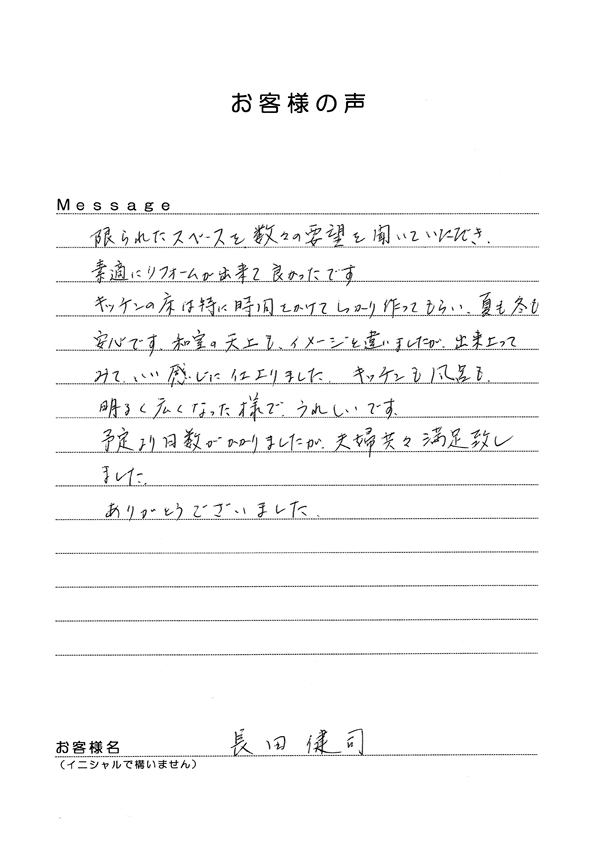 お客様の声
Message
限られたスペースを、数々の要望を聞いていただき、
素適にリフォームが出来て良かったです
キッチンの床は特に時間をかけてしっかり作ってもらい、夏も冬も
安心です。和室の天上も、イメージと違いましたが、出来上って
みて、いい感じに仕上りました。キッチンも風呂も、
明るく広くなった様で、うれしいです。
予定より日数がかかりましたが、夫婦共々満足致し
ました。
ありがとうございました。
お客様名 長田健司
（イニシャルで構いません）